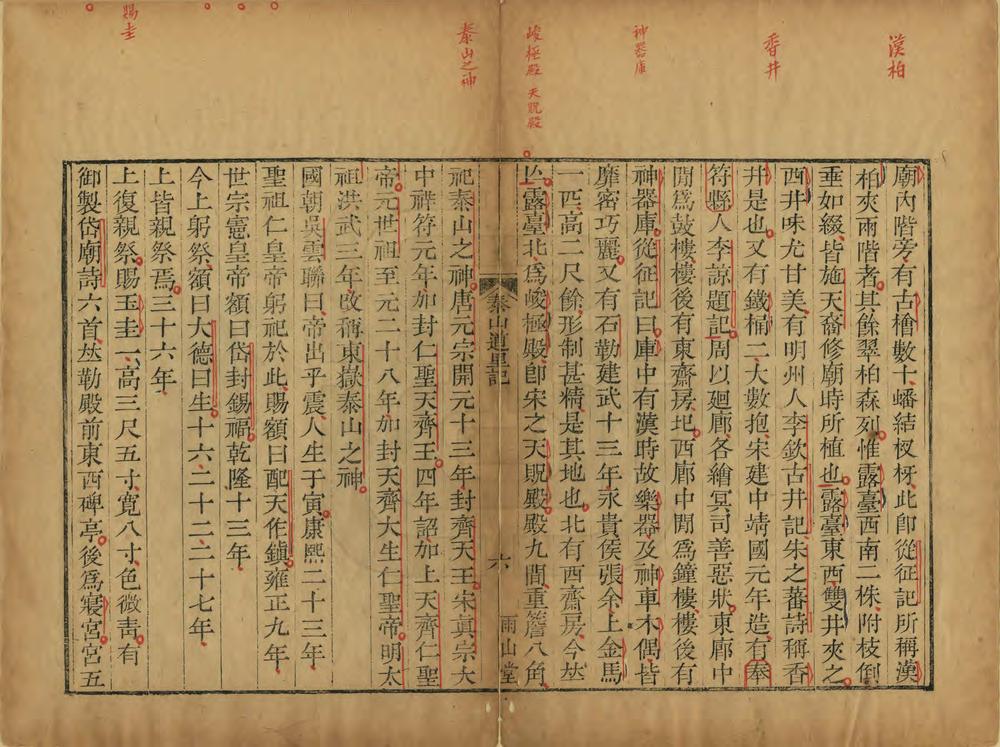 漢柏
香井
神器庫
峻極殿 天貺殿
泰山之神
賜圭
廟內階旁有古檜數十蟠結杈枒此卽從征記所稱漢
柏夾兩階者其餘翠柏森列惟露臺西南二株附枝倒
垂如綴皆施天裔修廟時所植也露臺東西雙井夾之
西井味尤甘美有明州人李欽古井記朱之蕃詩稱香
井是也又有鐵桶二大數抱宋建中靖國元年造有奉
符縣人李諒題記周以廻廊各繪冥司善惡狀東廊中
閒爲鼓樓樓後有東齋房址西廊中閒爲鐘樓樓後有
神器庫從征記曰庫中有漢時故樂器及神車木偶皆
靡密巧麗又有石勒建武十三年永貴侯張余上金馬
一匹高二尺餘形制甚精是其地也北有西齋房今竝
圯露臺北爲峻極殿卽宋之天貺殿殿九閒重簷八角
泰山道里記
六
雨山堂
祀泰山之神唐元宗開元十三年封齊天王宋真宗大
中祥符元年加封仁聖天齊王四年詔加上天齊仁聖
帝元世祖至元二十八年加封天齊大生仁聖帝明太
祖洪武三年改稱東嶽泰山之神
國朝吳雲聯曰帝出乎震人生于寅康熙二十三年
聖祖仁皇帝躬祀於此賜額曰配天作鎮雍正九年
世宗憲皇帝額曰岱封錫福乾隆十三年
今上躬祭額曰大德曰生十六二十二二十七年
上皆親祭焉三十六年
上復親祭賜玉圭一高三尺五寸寬八寸色微青有
御製岱廟詩六首竝勒殿前東西碑亭後爲寢宮宮五